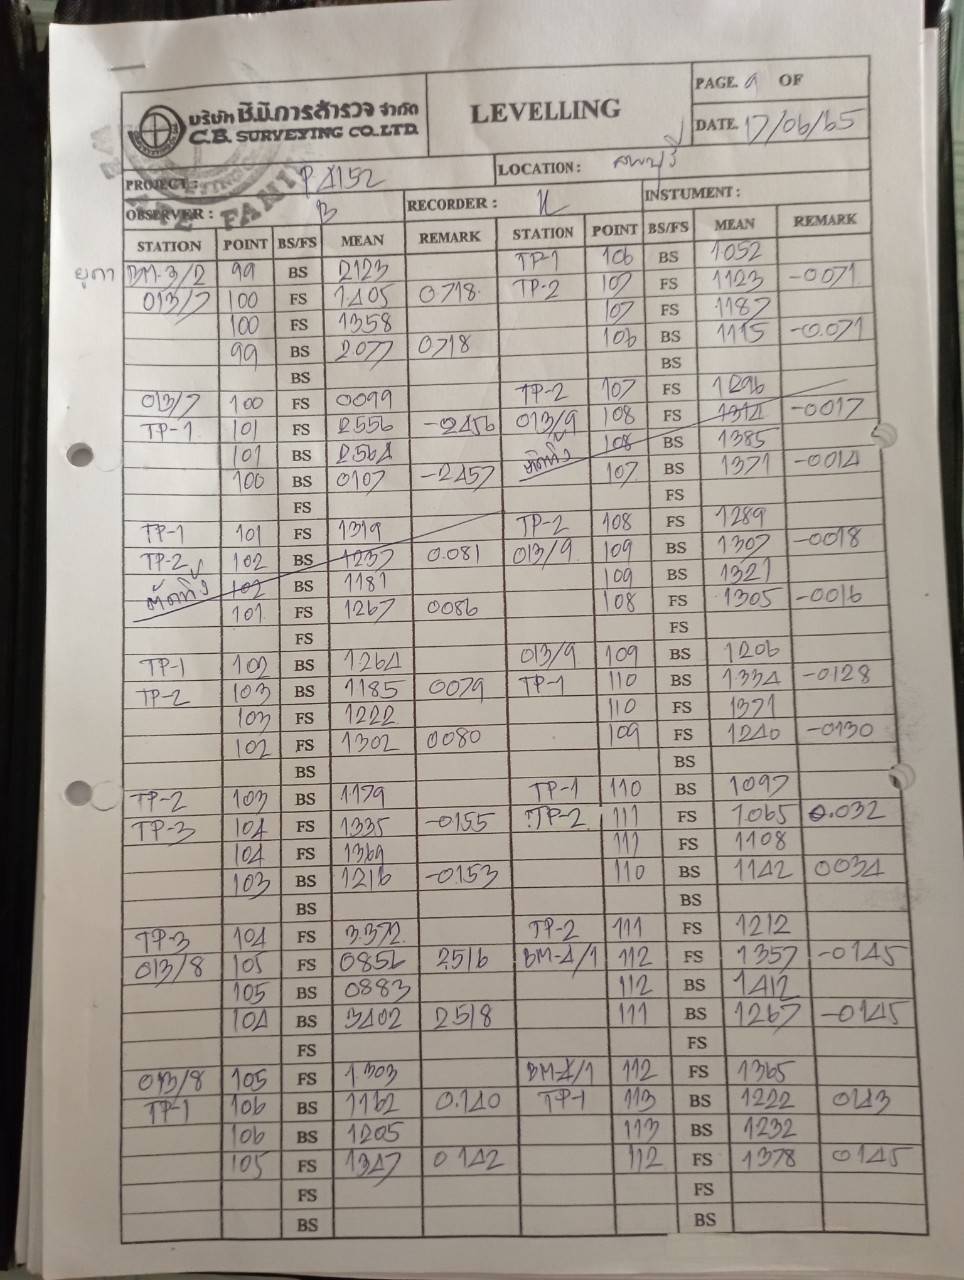 บริษัท ซี.บี.การสำรวจ จำกัด
C.B. SURVEYING CO.LTD.
LEVELLING
PAGE. OF
DATE. 17/06/65
PROJECT :
LOCATION :
OBSERVER : B
RECORDER :
INSTUMENT :
STATION POINT BS/FS MEAN REMARK STATION POINT BS/FS MEAN REMARK
BM-3/2 99 BS 2123 TP-1 106 BS 1052
013/7 100 FS 1.405 0718. TP-2 107 FS 1123 -0071
100 FS 1358 107 FS 1187
99 BS 2.077 0718 106 BS 1115 -0.071
BS BS
013/7 100 FS 0099 TP-2 107 FS 1296
TP-1 101 FS 2556 -2456 013/9 108 FS 1314 -0017
101 BS 2564 108 BS 1385
100 BS 0107 -2457 ตัดทิ้ง 107 BS 1371 -0014
FS FS
TP-1 101 FS 1319 TP-2 108 FS 1289
TP-2 102 BS 1237 0.081 013/9 109 BS 1307 -0018
ตัดทิ้ง 102 BS 1181 109 BS 1321
101 FS 1267 0086 108 FS 1305 -0016
FS FS
TP-1 102 BS 1264 013/9 109 BS 1206
TP-2 103 BS 1185 0079 TP-1 110 BS 1334 -0128
103 FS 1222 110 FS 1371
102 FS 1302 0080 109 FS 1240 -0130
BS BS
TP-2 103 BS 1179 TP-1 110 BS 1097
TP-3 104 FS 1335 -0155 TP-2 111 FS 1065 0.032
104 FS 1369 111 FS 1108
103 BS 1216 -0153 110 BS 1142 0034
BS BS
TP-3 104 FS 3.372 TP-2 111 FS 1212
013/8 105 FS 0856 2516 BM-4/1 112 FS 1357 -0145
105 BS 0883 112 BS 1412
104 BS 3402 2518 111 BS 1267 -0145
FS FS
013/8 105 FS 1.303 BM-4/1 112 FS 1365
TP-1 106 BS 1162 0.140 TP-1 113 BS 1222 0143
106 BS 1205 113 BS 1232
105 FS 1347 0142 112 FS 1378 0145
FS FS
BS BS